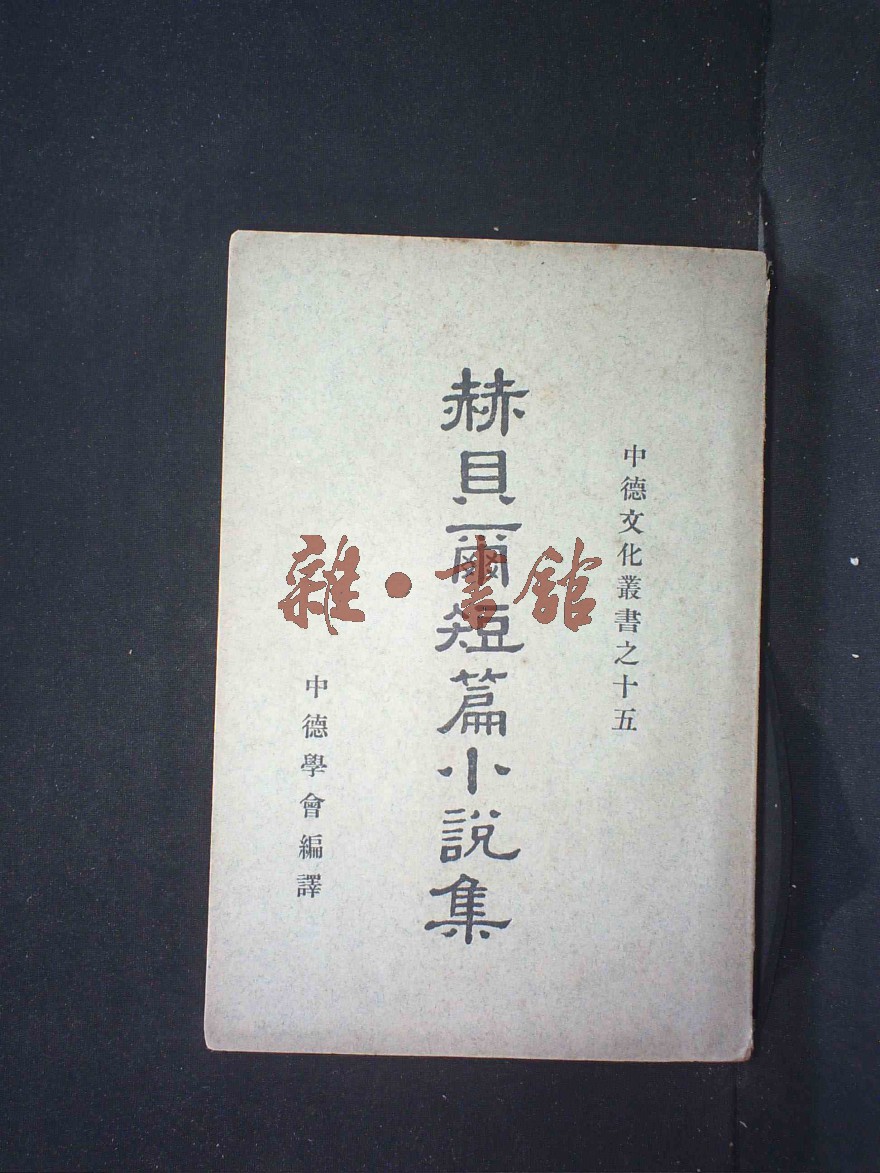 中德文化叢書之十五
赫貝爾短篇小說集
中德學會編譯
雜·書館